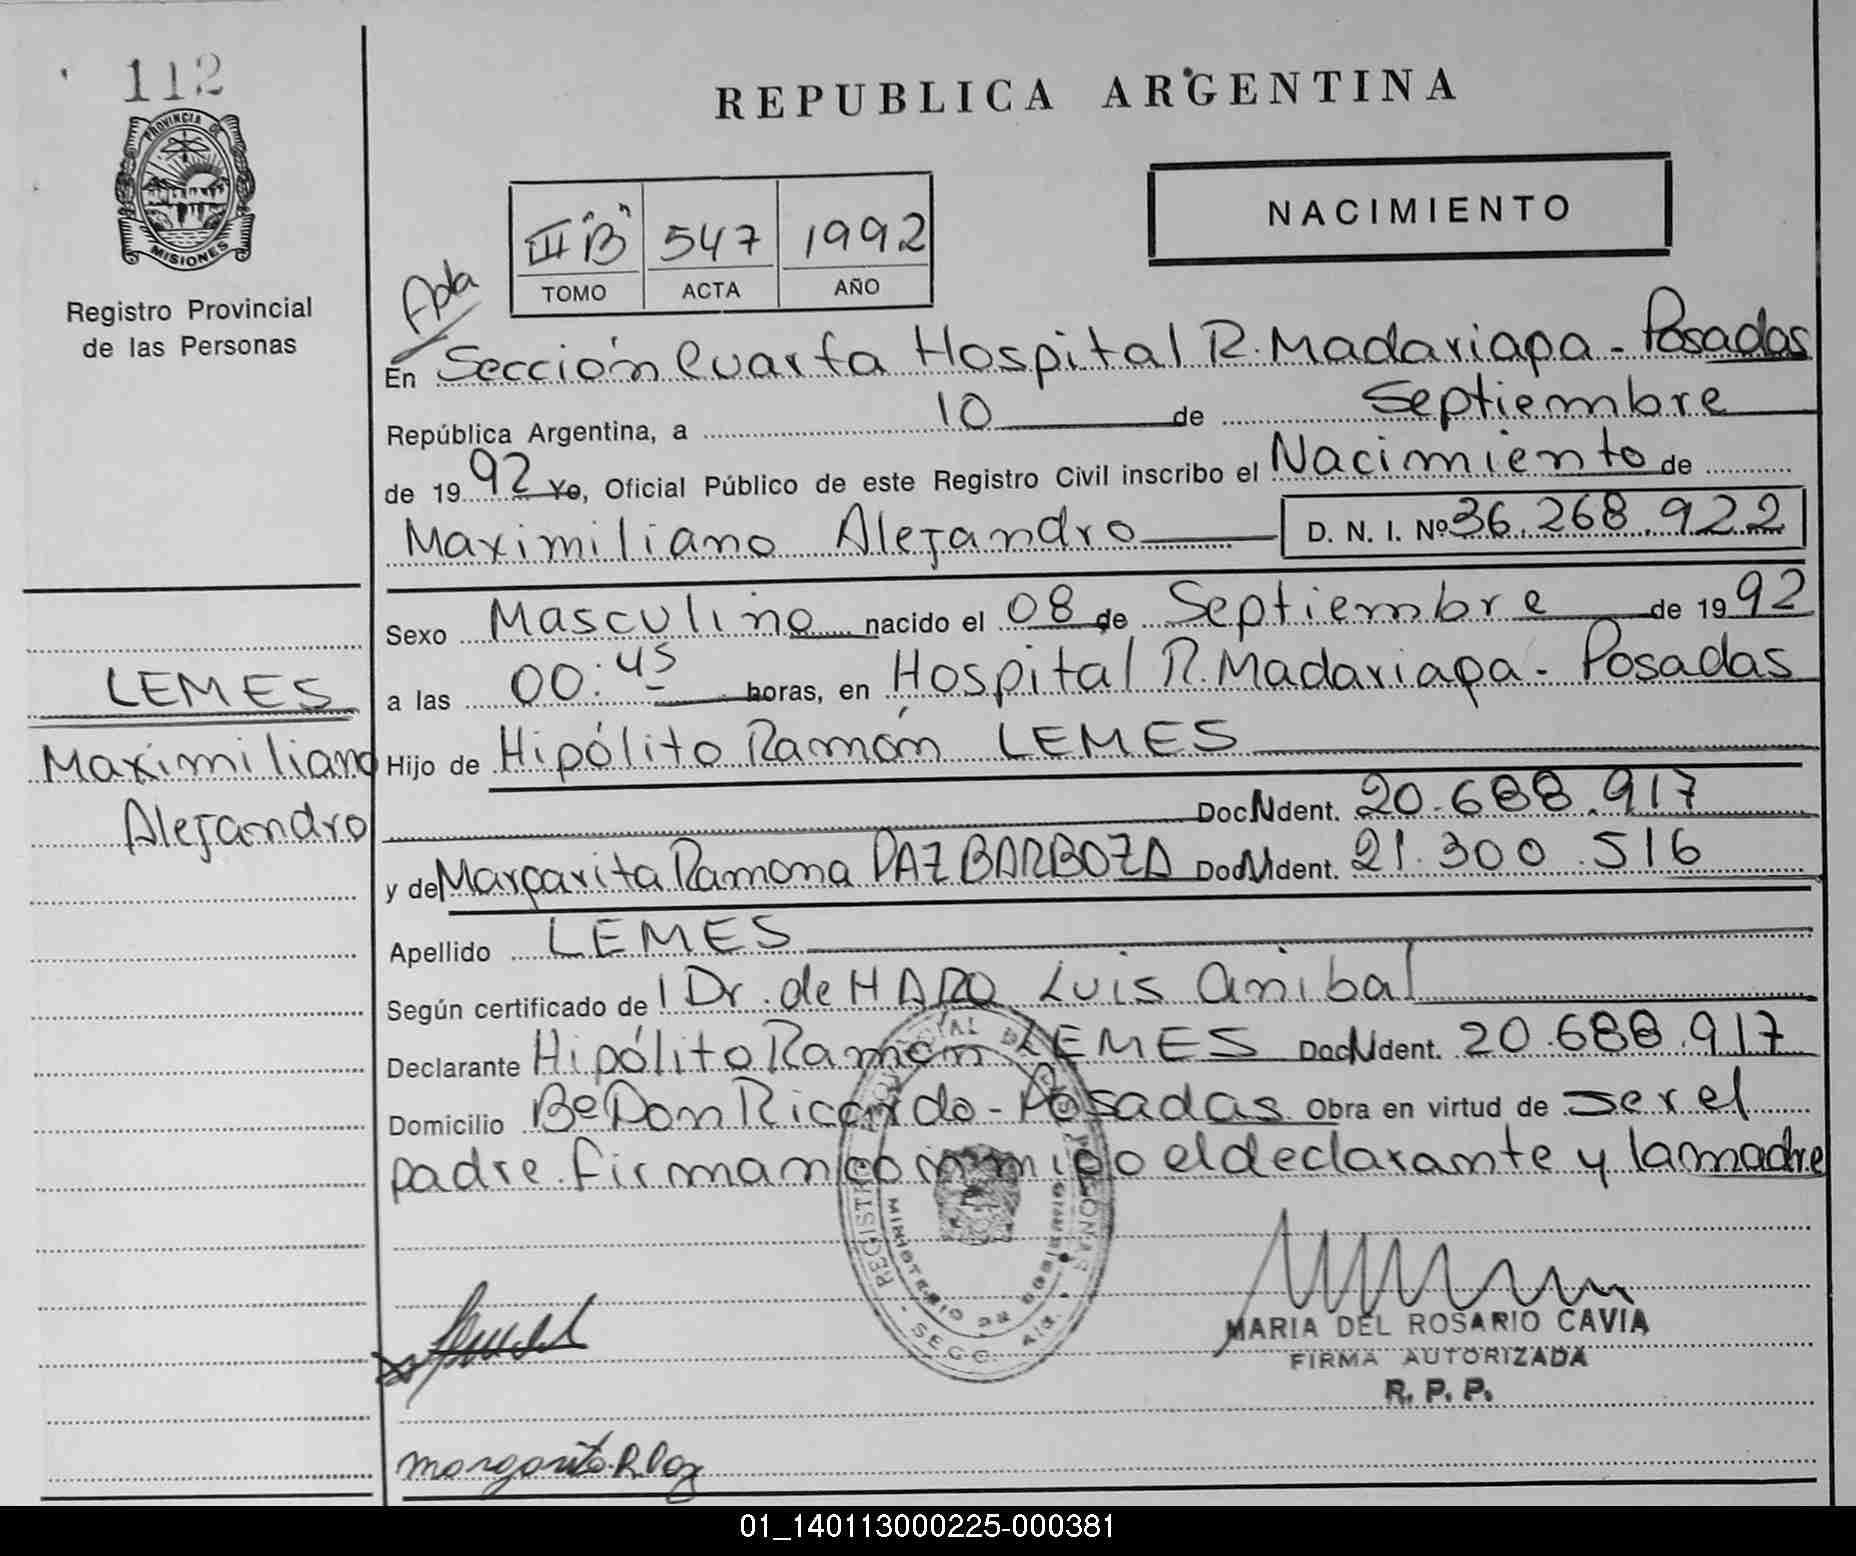 112
PROVINCIA DE
MISIONES
Registro Provincial
de las Personas
REPUBLICA ARGENTINA
III "B" 547 1992
TOMO ACTA AÑO
NACIMIENTO
Apda
En Sección Cuarta Hospital R. Madariaga - Posadas
República Argentina, a 10 de Septiembre
de 1992 Yo, Oficial Público de este Registro Civil inscribo el Nacimiento de
Maximiliano Alejandro D. N. I. Nº 36.268.922
Sexo Masculino nacido el 08 de Septiembre de 1992
a las 00:45 horas, en Hospital R. Madariaga - Posadas
Hijo de Hipólito Ramón LEMES
Doc N Ident. 20.688.917
y de Margarita Ramona PAZ BARBOZA Doc N Ident. 21.300.516
Apellido LEMES
Según certificado del Dr. de HARO Luis Anibal
Declarante Hipólito Ramón LEMES Doc N Ident. 20.688.917
Domicilio Bº Don Ricardo - Posadas Obra en virtud de ser el
padre. Firman conmigo el declarante y la madre
LEMES
Maximiliano
Alejandro
MINISTERIO DE GOBIERNO
MARIA DEL ROSARIO CAVIA
FIRMA AUTORIZADA
R. P. P.
Margarita R Paz
01_140113000225-000381